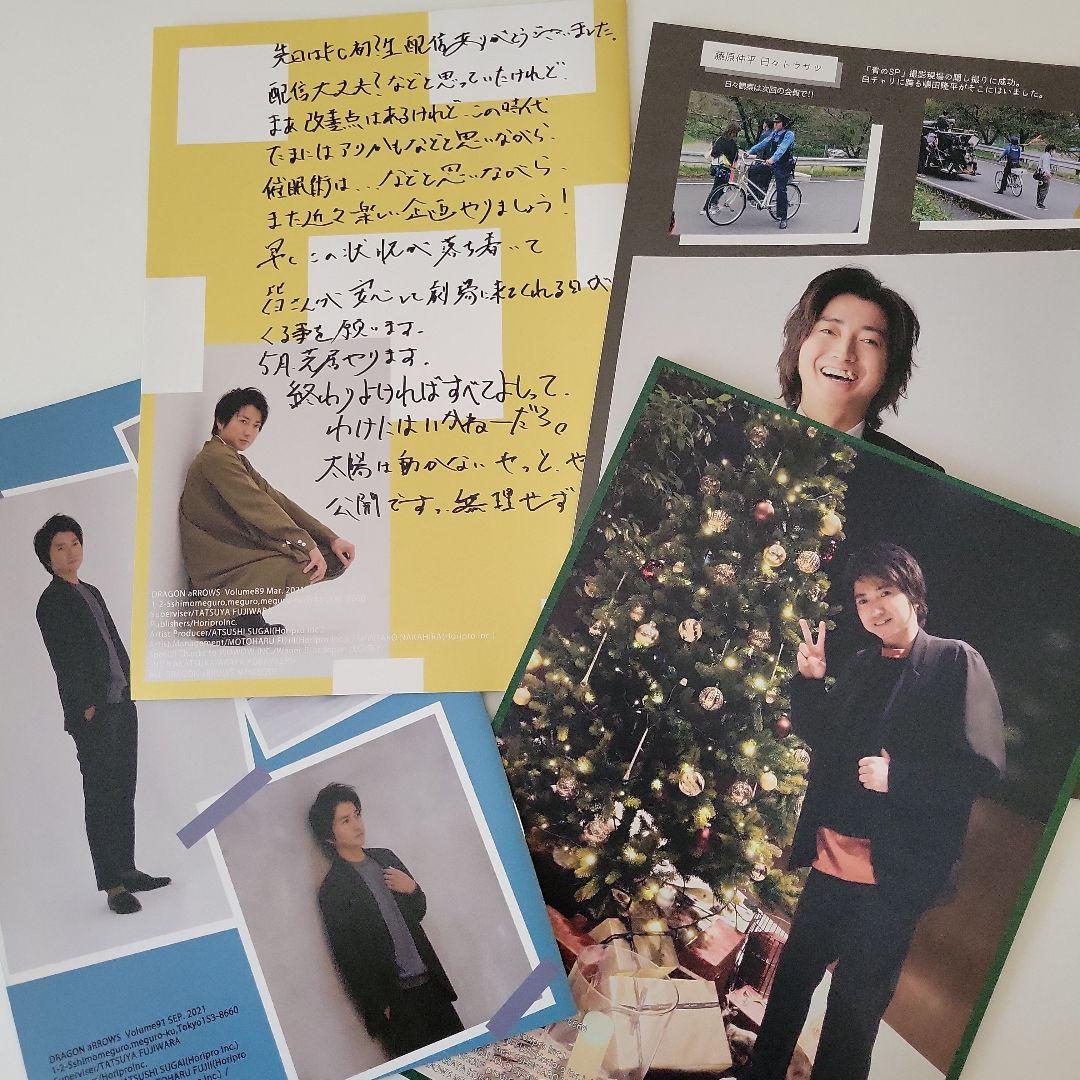 先日はFC初?生配信ありがとうございました。
配信大丈夫?などと思っていたけれど、
まあ改善点はあるけれど、この時代
たまにはアリかもなどと思いながら、
催眠術は...などと思いながら、
また近々楽しい企画やりましょう!
早くこの状況が落ち着いて
皆さんが安心して劇場に来てくれる日が
くる事を願います。
5月芝居やります。
終わりよければすべてよしって、
わけにはいかねーだろ。
太陽は動かない やっと、や
公開です。無理せず
DRAGON aRROWS Volume89 Mar. 2021
1-2-5shimomeguro,meguro,
Superviser/TATSUYA FUJIWARA
Publishers/HoriproInc.
Artist Producer/ATSUSHI SUGAI(Horipro Inc.)
Artist Management/MOTOHARU FUJII(Horipro Inc.)
藤原伸平 日々トウサツ
日々観察は次回の会報で!)
「青のSP」撮影現場の隠し撮りに成功。
白チャリに跨る嶋田隆平がそこにはいました。
DRAGON aRROWS Volume91 SEP. 2021
1-2-5shimomeguro,meguro-ku,Tokyo153-8660
Superviser/TATSUYA FUJIWARA
/HoriproInc.
ATSUSHI SUGAI(Horipro Inc.)
MOTOHARU FUJII(Horipro
Inc.) /